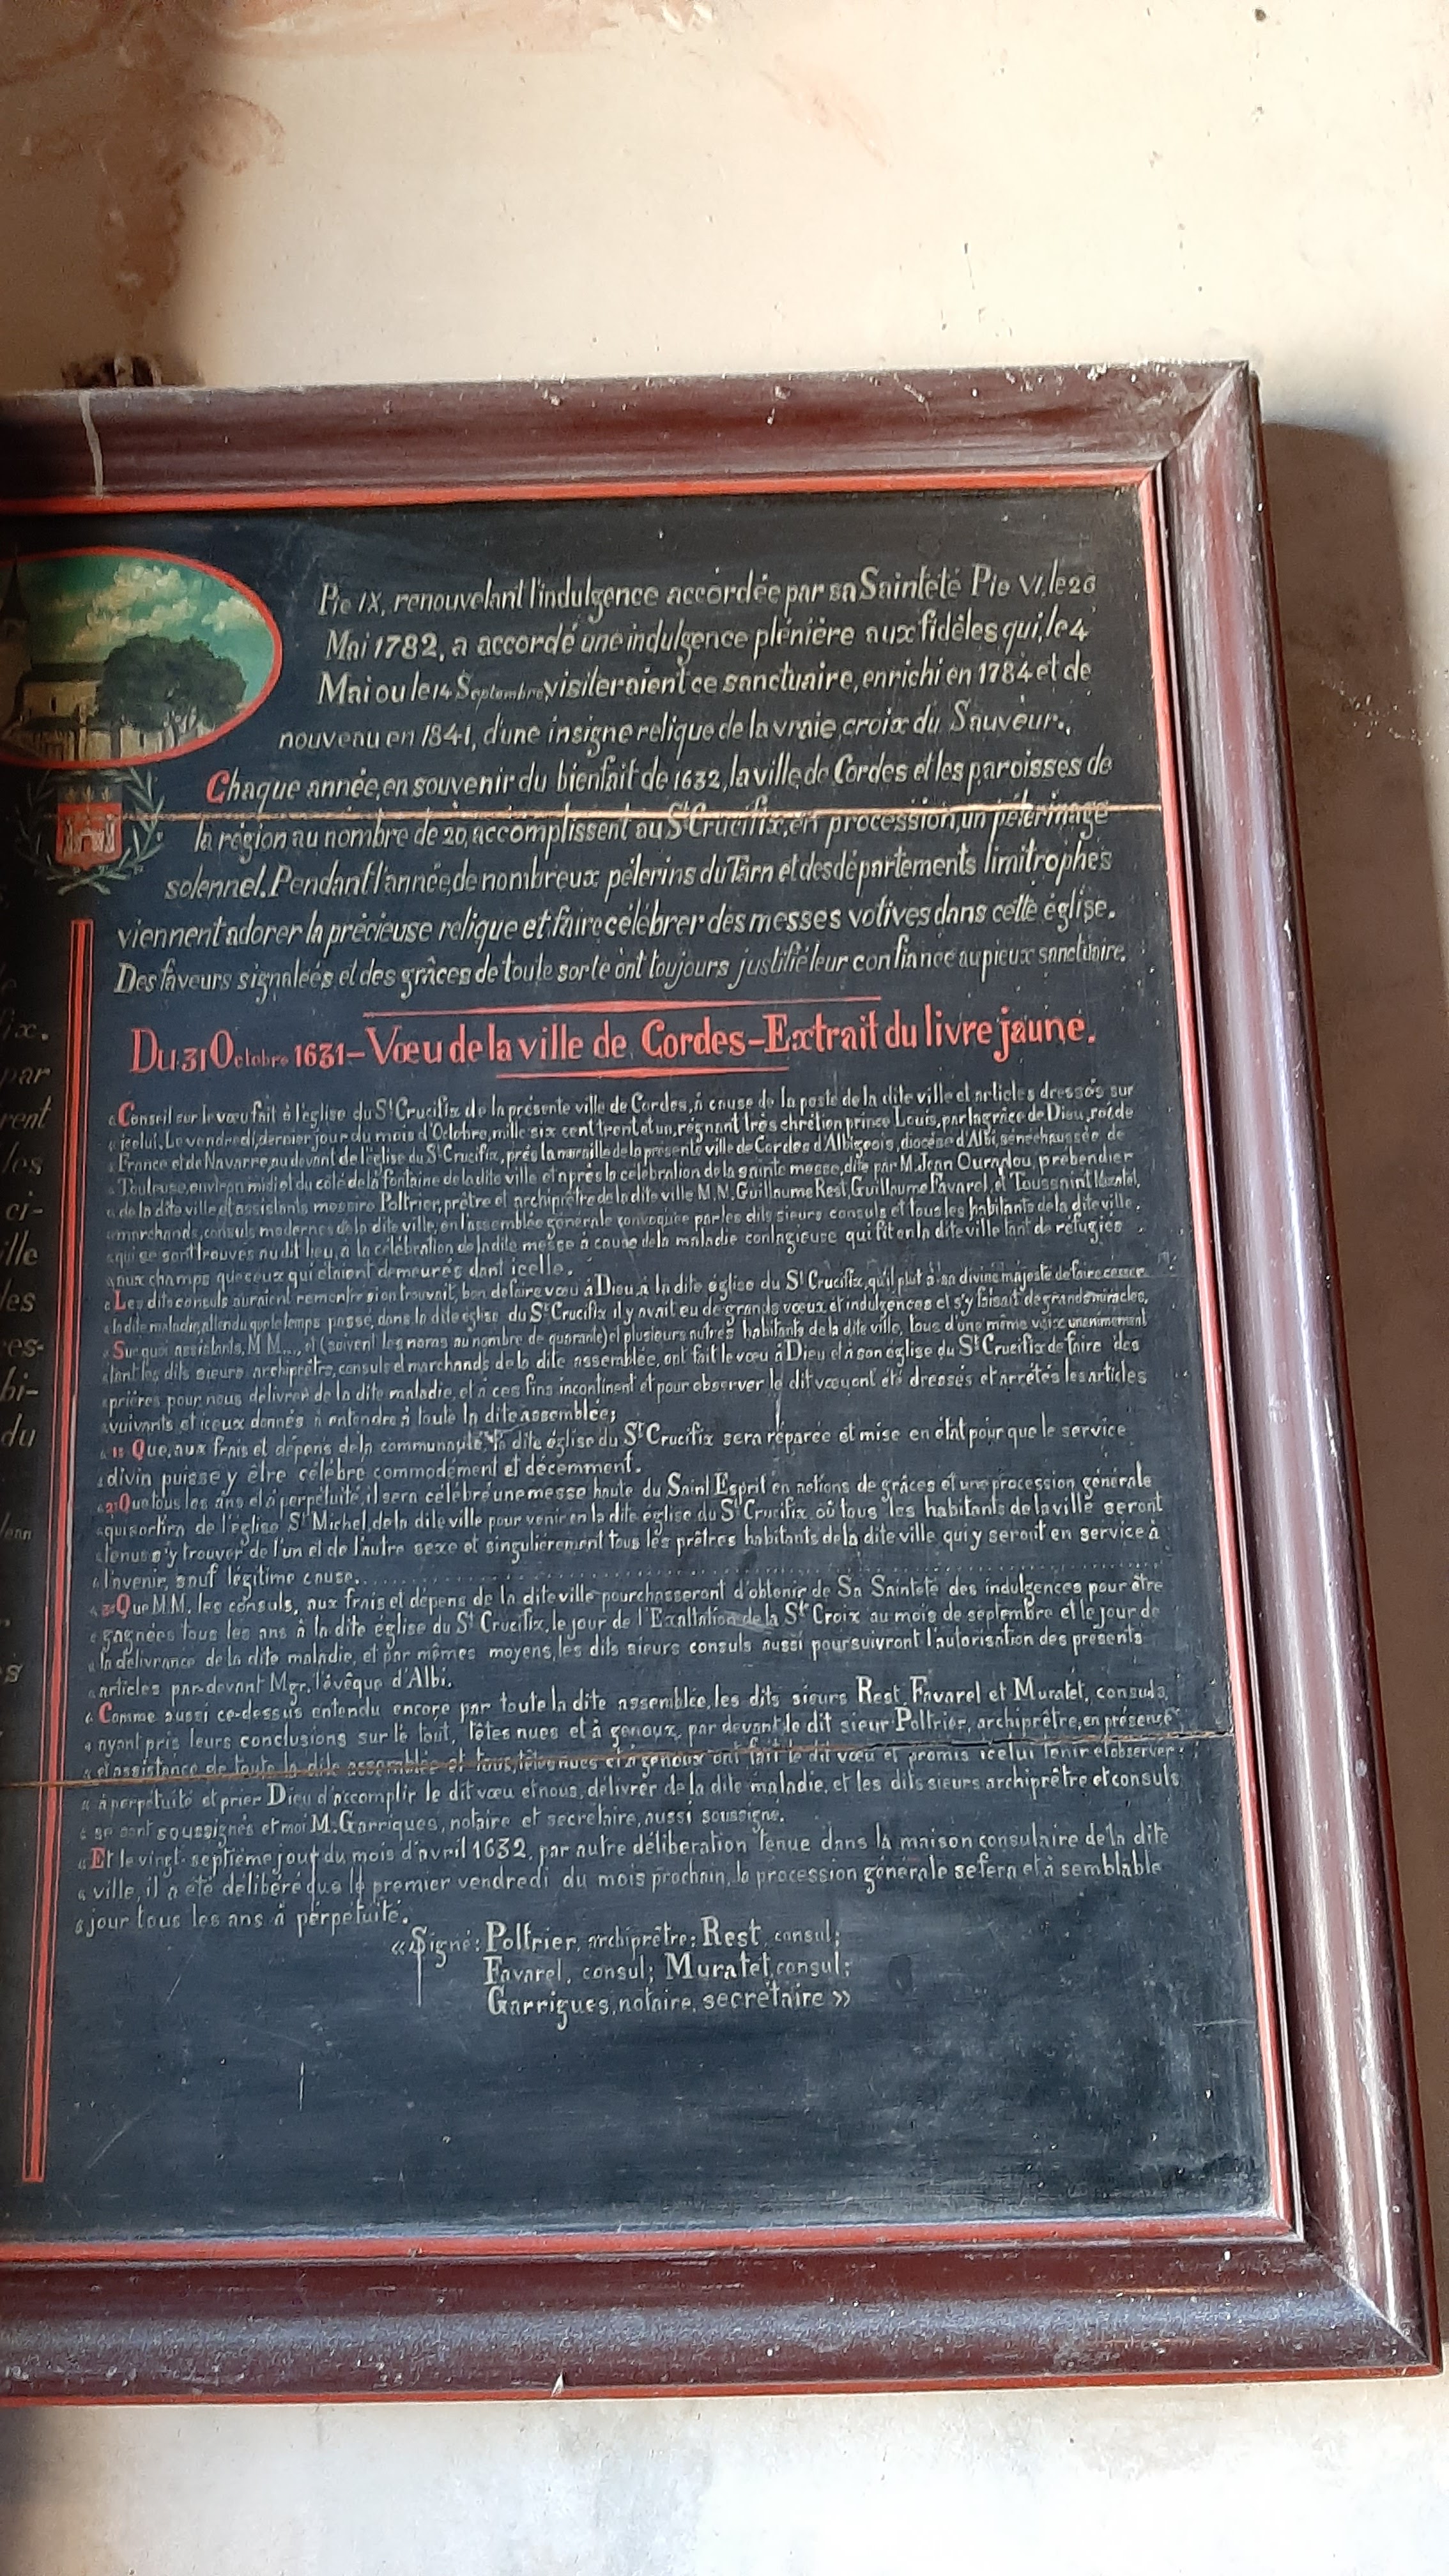 Pie IX, renouvelant l'indulgence accordée par sa Sainteté Pie VI, le 26
Mai 1782, a accordé une indulgence plénière aux fidèles qui, le 4
Mai ou le 14 Septembre visiteraient ce sanctuaire, enrichi en 1784 et de
nouveau en 1841, d'une insigne relique de la vraie croix du Sauveur.
Chaque année, en souvenir du bienfait de 1632, la ville de Cordes et les paroisses de
la région au nombre de 20, accomplissent au St Crucifix, en procession, un pélerinage
solennel. Pendant l'année, de nombreux pélerins du Tarn et des départements limitrophes
viennent adorer la précieuse relique et faire célébrer des messes votives dans cette église.
Des faveurs signalées et des grâces de toute sorte ont toujours justifié leur confiance au pieux sanctuaire.
Du 31 Octobre 1631 – Vœu de la ville de Cordes – Extrait du livre jaune.
« Conseil sur le vœu fait à l'église du St Crucifix de la présente ville de Cordes, à cause de la peste de la dite ville et articles dressés sur
« icelui. Le vendredi, dernier jour du mois d'Octobre, mille six cent trent et un, régnant très chrétien prince Louis, par la grâce de Dieu, roi de
« France et de Navarre, au devant de l'église du St Crucifix, près la muraille de la présente ville de Cordes d'Albigeois, diocèse d'Albi, sénéchaussée de
« Toulouse, environ midi et du côté de la fontaine de la dite ville et après la célébration de la sainte messe, dite par M. Jean Ouradou, prébendier
« de la dite ville et assistants messire Poltrier, prêtre et archiprêtre de la dite ville M.M. Guillaume Rest, Guillaume Favarel, et Toussaint Muratet,
« marchands, consuls modernes de la dite ville, en l'assemblée générale convoquée par les dits sieurs consuls et tous les habitants de la dite ville,
« qui se sont trouvés au dit lieu, à la célébration de la dite messe à cause de la maladie contagieuse qui fit en la dite ville tant de réfugiés
« aux champs que ceux qui étaient demeurés dant icelle.
« Les dits consuls auraient remontré si on trouvait, bon de faire vœu à Dieu, à la dite église du St Crucifix, qu'il plut à sa divine majesté de faire cesser
« la dite maladie, attendu que le temps passé, dans la dite église du St Crucifix il y avait eu de grands vœux et indulgences et s'y faisait de grands miracles,
« Sur quoi assistants, M M..., et (suivent les noms au nombre de quarante) et plusieurs autres habitants de la dite ville, tous d'une même voix unanimement
« tant les dits sieurs archiprêtre, consuls et marchands de la dite assemblée, ont fait le vœu à Dieu et à son église du St Crucifix de faire des
« prières pour nous délivrer de la dite maladie, et à ces fins incontinent et pour observer le dit vœu ont été dressés et arrêtés les articles
« vuivants et iceux donnés à entendre à toute la dite assemblée;
« 1º Que, aux frais et dépens de la communauté, la dite église du St Crucifix sera réparée et mise en état pour que le service
« divin puisse y être célébré commodément et décemment.
« 2º Que tous les ans et à perpétuité, il sera célébré une messe haute du Saint Esprit en actions de grâces et une procession générale
« qui sortira de l'église St Michel, de la dite ville pour venir en la dite église du St Crucifix, où tous les habitants de la ville seront
« tenus s'y trouver de l'un et de l'autre sexe et singulièrement tous les prêtres habitants de la dite ville qui y seront en service à
« l'avenir, sauf légitime cause.
« 3º Que M.M. les consuls, aux frais et dépens de la dite ville pourchasseront d'obtenir de Sa Sainteté des indulgences pour être
« gagnées tous les ans à la dite église du St Crucifix, le jour de l'Exaltation de la Ste Croix au mois de septembre et le jour de
« la délivrance de la dite maladie, et par mêmes moyens, les dits sieurs consuls aussi poursuivront l'autorisation des présents
« articles par-devant Mgr. l'évêque d'Albi.
« Comme aussi ce-dessus entendu encore par toute la dite assemblée, les dits sieurs Rest, Favarel et Muratet, consuls,
« ayant pris leurs conclusions sur le tout, têtes nues et à genoux, par devant le dit sieur Poltrier, archiprêtre, en présence
« et assistance de toute la dite assemblée et tous, têtes nues et à genoux ont fait le dit vœu et promis icelui tenir et observer
« à perpétuité et prier Dieu d'accomplir le dit vœu et nous, délivrer de la dite maladie, et les dits sieurs archiprêtre et consuls
« se sont soussignés et moi M. Garriques, notaire et secrétaire, aussi soussigné.
« Et le vingt-septième jour du mois d'avril 1632, par autre délibération tenue dans la maison consulaire de la dite
« ville, il a été délibéré que le premier vendredi du mois prochain, la procession générale se fera et à semblable
« jour tous les ans à perpétuité.
« Signé: Poltrier, archiprêtre; Rest, consul;
Favarel, consul; Muratet, consul;
Garrigues, notaire, secrétaire »